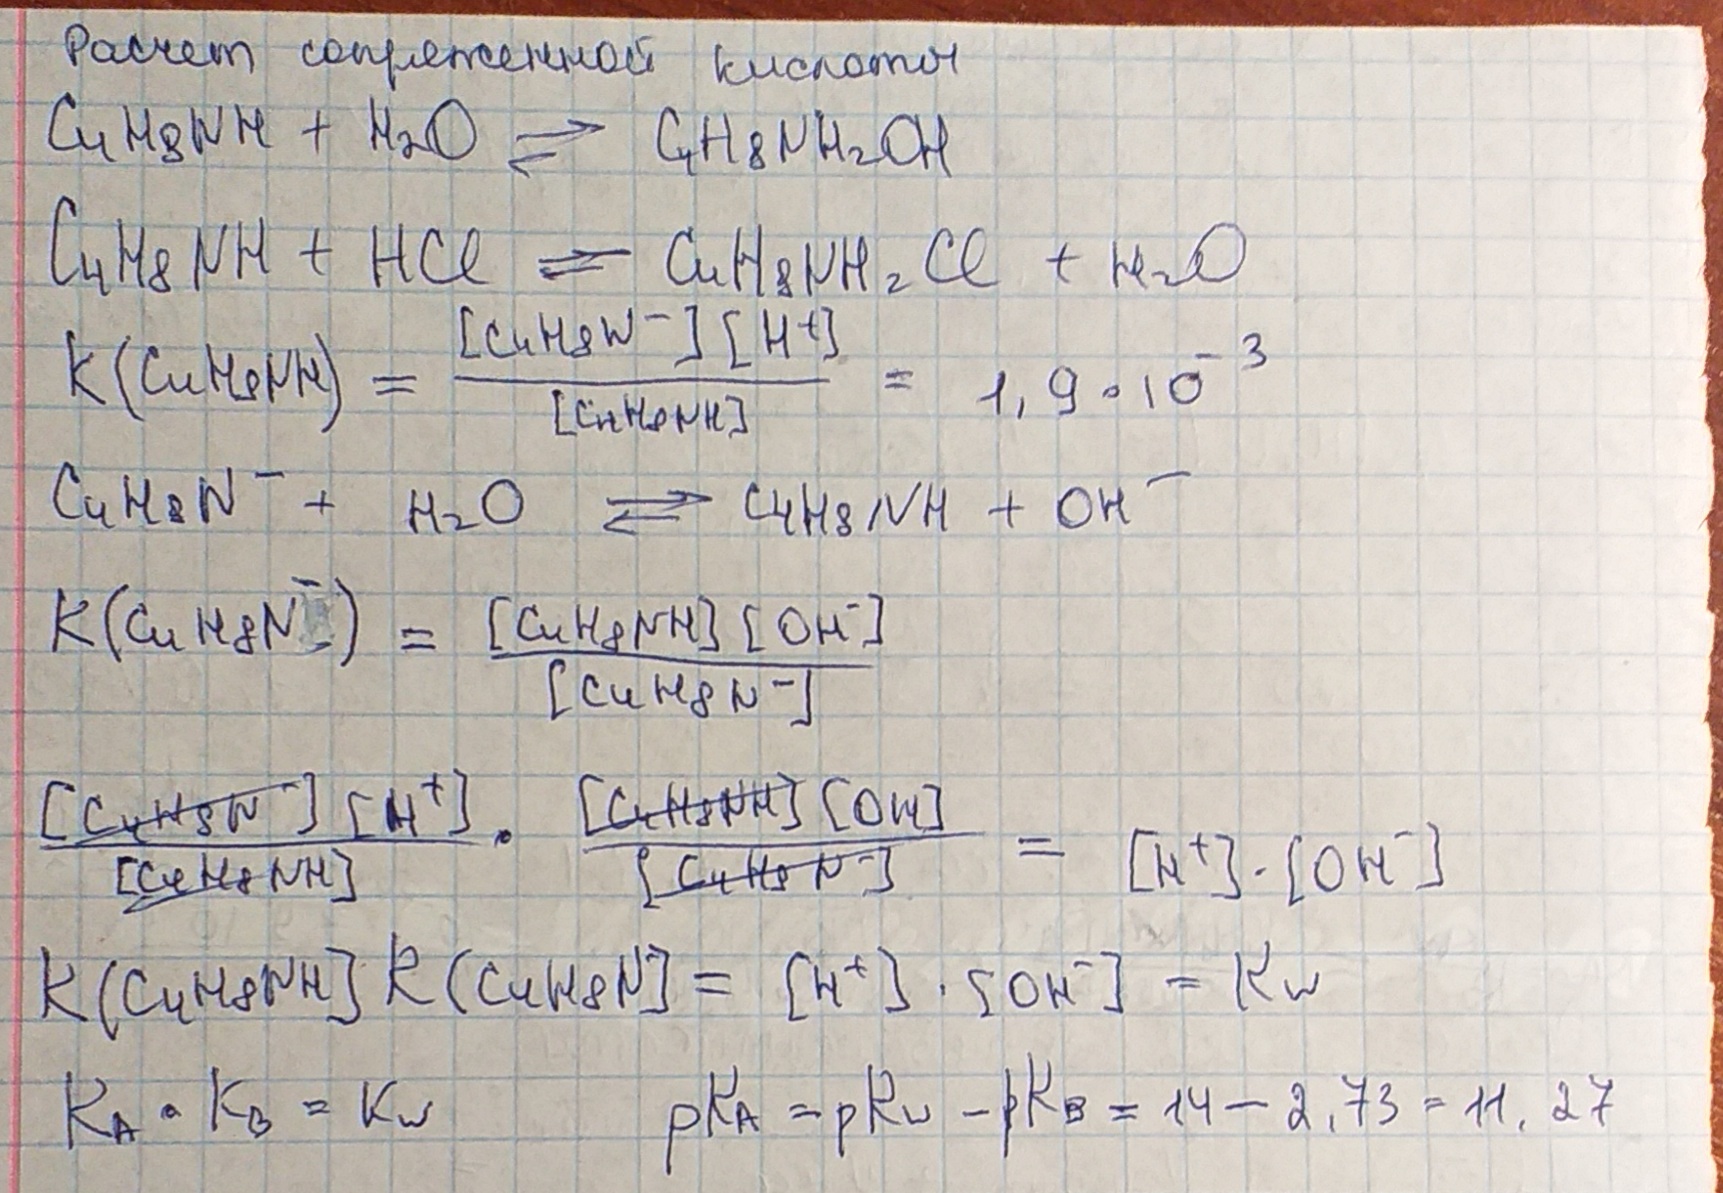 Расчет сопряженной кислоты
C₄H₈NH + H₂O ⇌ C₄H₈NH₂OH
C₄H₈NH + HCl ⇌ C₄H₈NH₂Cl + H₂O
K(C₄H₈NH) = [C₄H₈N⁻][H⁺] / [C₄H₈NH] = 1,9·10⁻³
C₄H₈N⁻ + H₂O ⇌ C₄H₈NH + OH⁻
K(C₄H₈N⁻) = [C₄H₈NH][OH⁻] / [C₄H₈N⁻]
[C₄H₈N⁻][H⁺] / [C₄H₈NH] · [C₄H₈NH][OH] / [C₄H₈N⁻] = [H⁺]·[OH⁻]
K(C₄H₈NH] K(C₄H₈N⁻] = [H⁺]·[OH⁻] = Kw
KA · KB = Kw pKA = pKw - pKB = 14 - 2,73 = 11,27